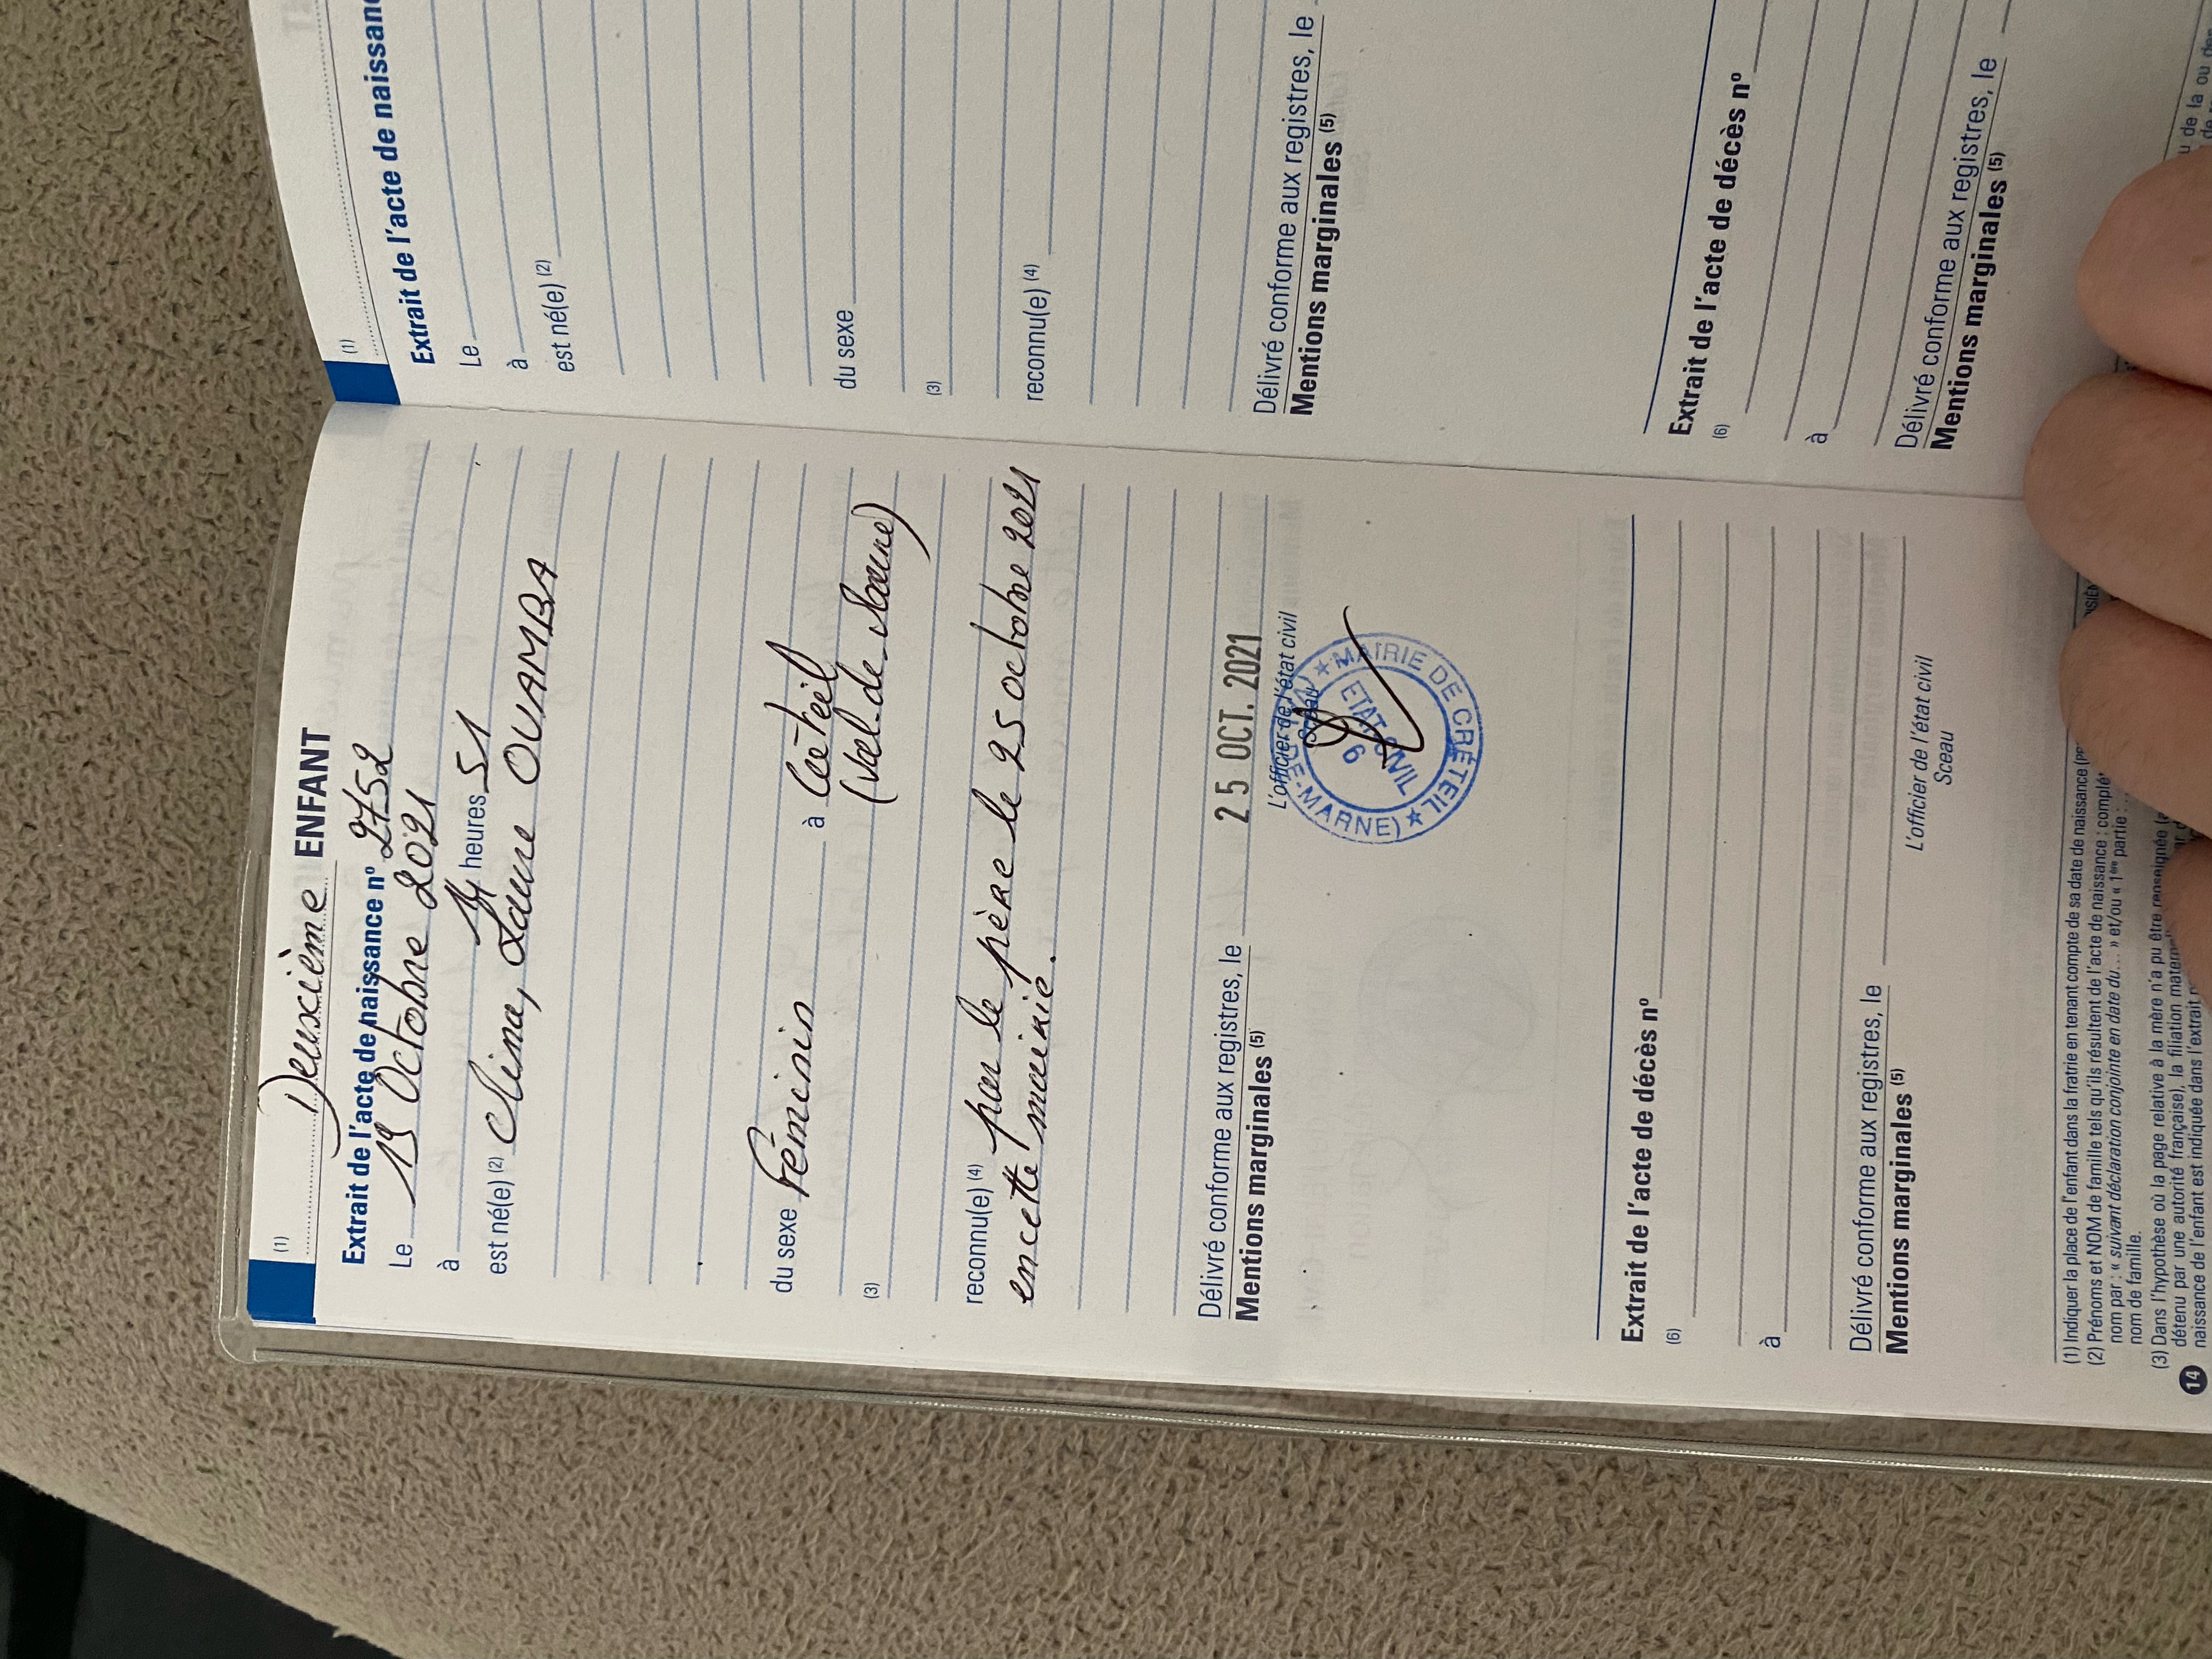 (1) Deuxième ENFANT
Extrait de l'acte de naissance nº 2752
Le 19 Octobre 2021
à 14 heures 51
est né(e) (2) Laure OUAMBA
du sexe Féminin à Créteil
(3) (Val de Marne)
reconnu(e) (4) par le père le 25 octobre 2021
en cette mairie.
Délivré conforme aux registres, le 25 OCT. 2021
Mentions marginales (5)
L'officier de l'état civil
Sceau
MAIRIE DE CRÉTEIL
(VAL-DE-MARNE)
ETAT CIVIL
6
Extrait de l'acte de décès nº
(6)
à
Délivré conforme aux registres, le
Mentions marginales (5)
L'officier de l'état civil
Sceau
(1) Indiquer la place de l'enfant dans la fratrie en tenant compte de sa date de naissance
(2) Prénoms et NOM de famille tels qu'ils résultent de l'acte de naissance ; complé
nom par : « suivant déclaration conjointe en date du... » et/ou « 1ère partie :
nom de famille.
(3) Dans l'hypothèse où la page relative à la mère n'a pu être renseignée
détenu par une autorité française), la filiation mater
naissance de l'enfant est indiquée dans l'extrait
14
(1)
Extrait de l'acte de naissanc
Le
à
est né(e) (2)
du sexe
(3)
reconnu(e) (4)
Délivré conforme aux registres, le
Mentions marginales (5)
Extrait de l'acte de décès nº
(6)
à
Délivré conforme aux registres, le
Mentions marginales (5)
de la ou des